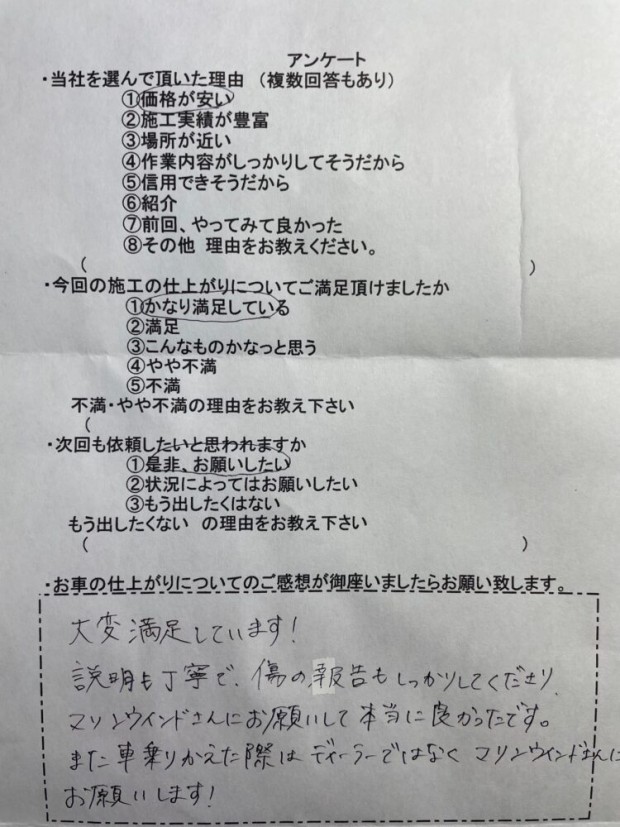 アンケート
・当社を選んで頂いた理由 （複数回答もあり）
①価格が安い
②施工実績が豊富
③場所が近い
④作業内容がしっかりしてそうだから
⑤信用できそうだから
⑥紹介
⑦前回、やってみて良かった
⑧その他 理由をお教えください。
（ ）
・今回の施工の仕上がりについてご満足頂けましたか
①かなり満足している
②満足
③こんなものかなっと思う
④やや不満
⑤不満
不満・やや不満の理由をお教え下さい
（
・次回も依頼したいと思われますか
①是非、お願いしたい
②状況によってはお願いしたい
③もう出したくはない
もう出したくない の理由をお教え下さい
（ ）
・お車の仕上がりについてのご感想が御座いましたらお願い致します。
大変満足しています！
説明も丁寧で、傷の報告もしっかりしてくださり
マリンウインドさんにお願いして本当に良かったです。
また車乗りかえた際はディーラーではなくマリンウインドさんに
お願いします！